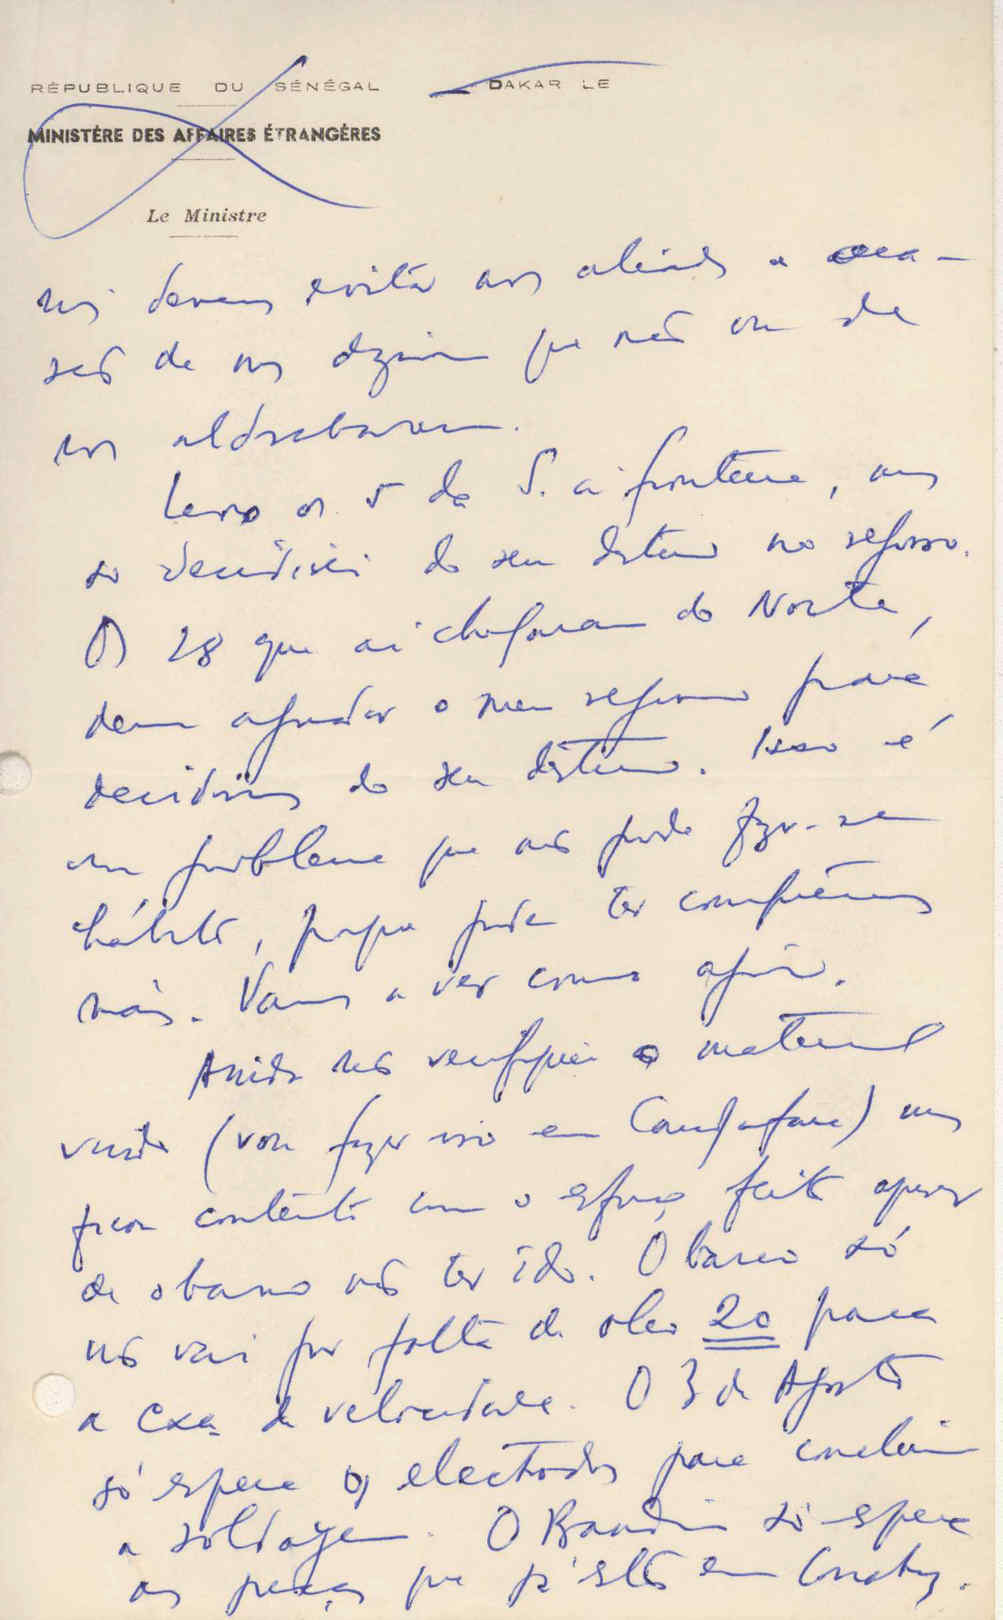 RÉPUBLIQUE DU SÉNÉGAL DAKAR LE
MINISTÈRE DES AFFAIRES ÉTRANGÈRES
Le Ministre
devem evitar aos aliados a oca-
são de nos dizerem que não
nos aldrabaram.
Levo os 5 da S. à fronteira, mas
só decidirei do seu destino no regresso.
Os 28 que aí chegaram do Norte,
devem aguardar o meu regresso para
decidirmos do seu destino. Isso é
um problema que não pode fazer-se
hábito, porque pode ter consequências
más. Vamos a ver como agir.
Ainda não verifiquei o material
vindo (vou fazer isso em Candjafara) mas
ficou contente com o esforço feito apesar
de o barco não ter ido. O barco só
não vai por falta de oleo 20 para
a cxa de velocidade. O 3 de Agosto
só espera os electrodos para concluir
a soldagem. O Bandim só espera
as peças que já estão em Conakry.